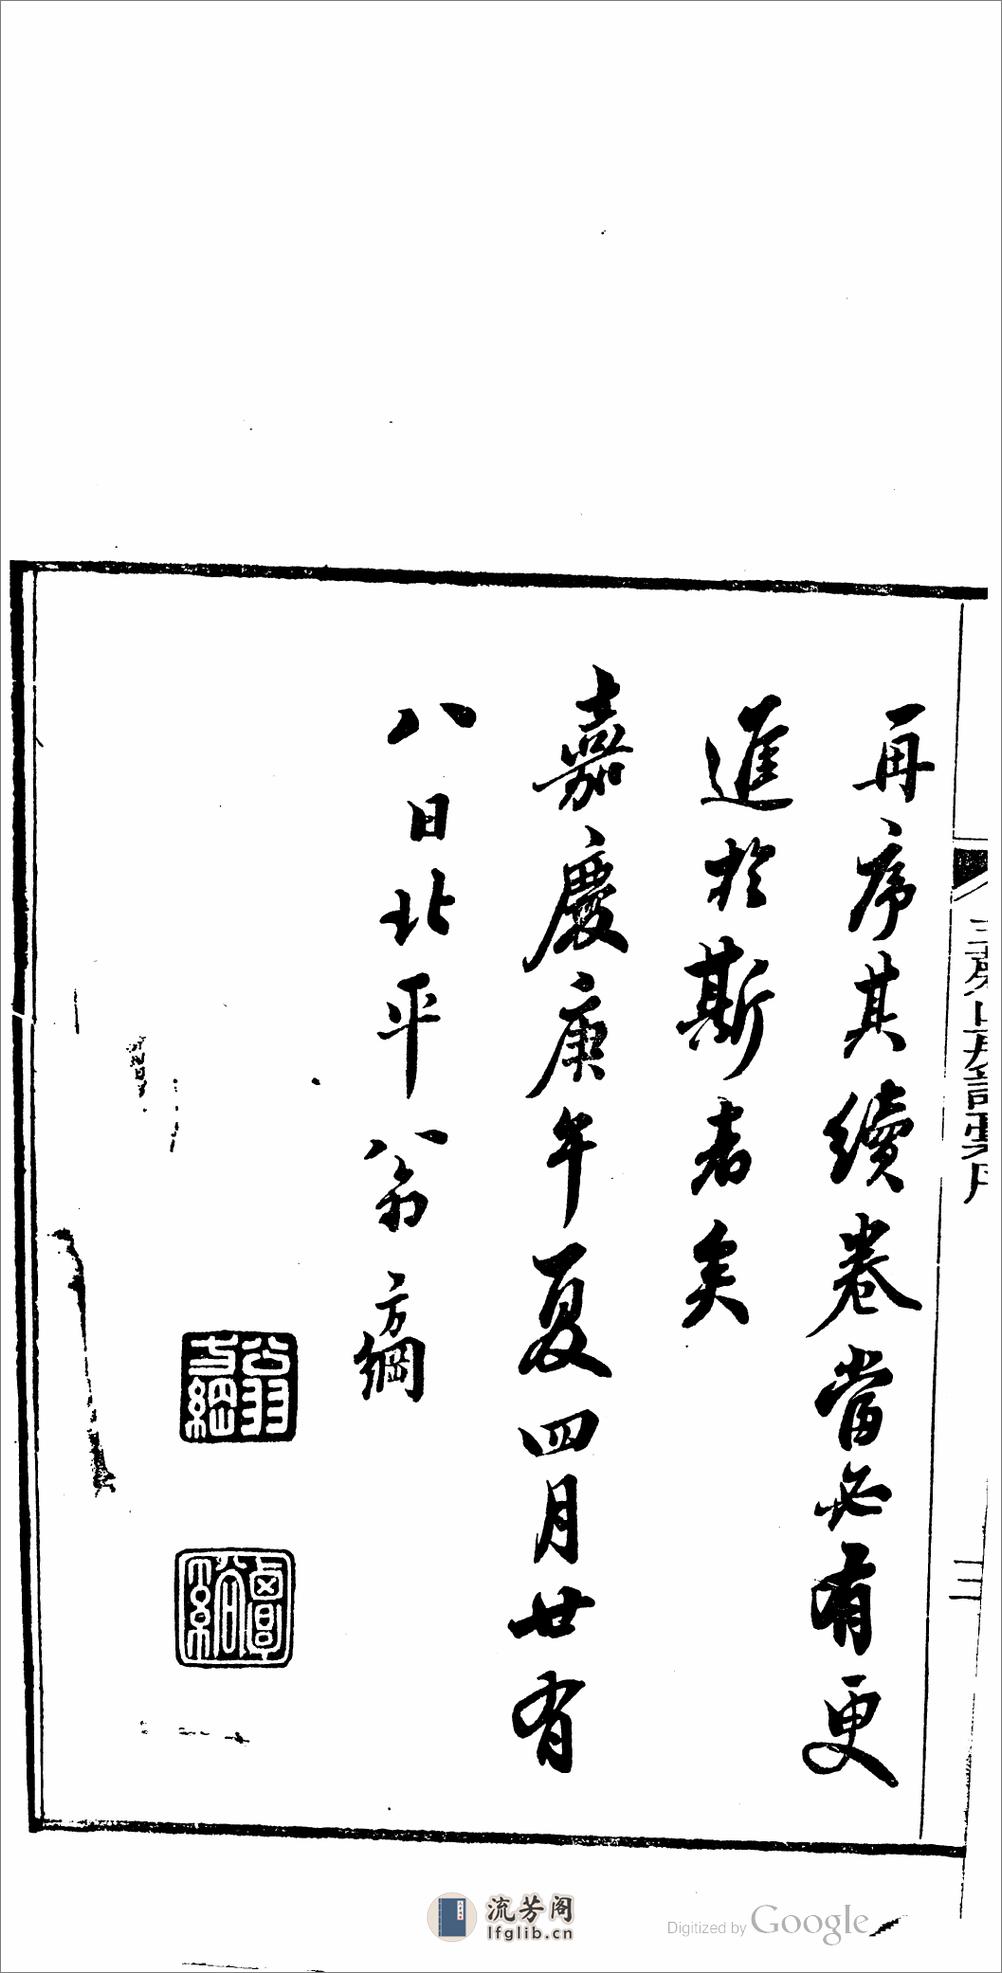 再序其續卷當必有更
進於斯者矣
嘉慶庚午夏四月廿有
八日北平翁方綱
翁方綱
覃谿
三
流芳阁
lfglib.cn
Digitized by Google